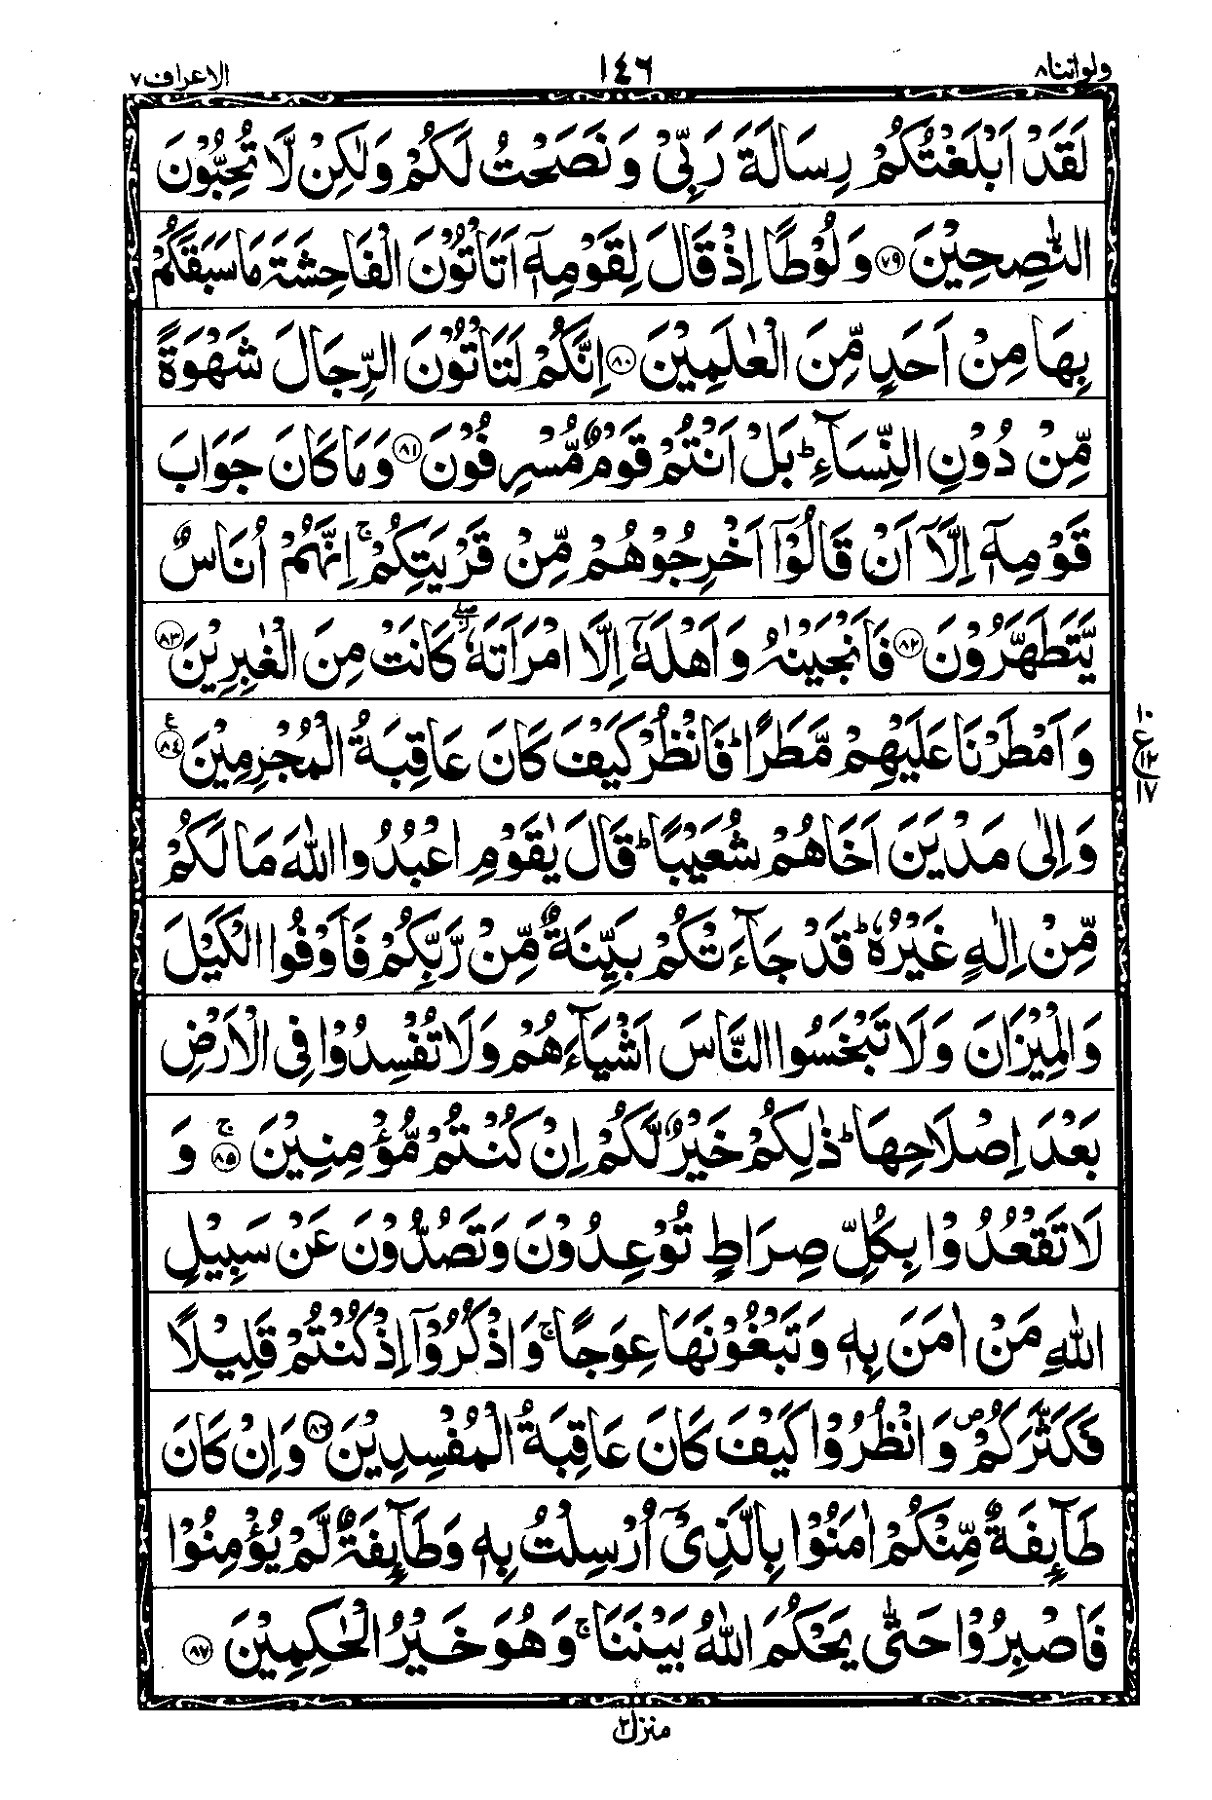 ولواننا۸
١٤٦
الاعراف٧
لَقَدْ اَبْلَغْتُكُمْ رِسَالَةَ رَبِّىْ وَنَصَحْتُ لَكُمْ وَلٰكِنْ لَّا تُحِبُّوْنَ
النّٰصِحِيْنَ ﴿٧٩﴾ وَلُوْطًا اِذْ قَالَ لِقَوْمِهٖٓ اَتَاْتُوْنَ الْفَاحِشَةَ مَا سَبَقَكُمْ
بِهَا مِنْ اَحَدٍ مِّنَ الْعٰلَمِيْنَ ﴿٨٠﴾ اِنَّكُمْ لَتَاْتُوْنَ الرِّجَالَ شَهْوَةً
مِّنْ دُوْنِ النِّسَآءِ ؕ بَلْ اَنْتُمْ قَوْمٌ مُّسْرِفُوْنَ ﴿٨١﴾ وَمَا كَانَ جَوَابَ
قَوْمِهٖٓ اِلَّآ اَنْ قَالُوْٓا اَخْرِجُوْهُمْ مِّنْ قَرْيَتِكُمْ ۚ اِنَّهُمْ اُنَاسٌ
يَّتَطَهَّرُوْنَ ﴿٨٢﴾ فَاَنْجَيْنٰهُ وَاَهْلَهٗٓ اِلَّا امْرَاَتَهٗ ۖ كَانَتْ مِنَ الْغٰبِرِيْنَ ﴿٨٣﴾
وَاَمْطَرْنَا عَلَيْهِمْ مَّطَرًا ؕ فَانْظُرْ كَيْفَ كَانَ عَاقِبَةُ الْمُجْرِمِيْنَ ﴿٨٤﴾ ع
١٠
ع
١٢
١٧
وَاِلٰى مَدْيَنَ اَخَاهُمْ شُعَيْبًا ؕ قَالَ يٰقَوْمِ اعْبُدُوا اللّٰهَ مَا لَكُمْ
مِّنْ اِلٰهٍ غَيْرُهٗ ؕ قَدْ جَآءَتْكُمْ بَيِّنَةٌ مِّنْ رَّبِّكُمْ فَاَوْفُوا الْكَيْلَ
وَالْمِيْزَانَ وَلَا تَبْخَسُوا النَّاسَ اَشْيَآءَهُمْ وَلَا تُفْسِدُوْا فِى الْاَرْضِ
بَعْدَ اِصْلَاحِهَا ؕ ذٰلِكُمْ خَيْرٌ لَّكُمْ اِنْ كُنْتُمْ مُّؤْمِنِيْنَ ﴿٨٥﴾ ۚ وَ
لَا تَقْعُدُوْا بِكُلِّ صِرَاطٍ تُوْعِدُوْنَ وَتَصُدُّوْنَ عَنْ سَبِيْلِ
اللّٰهِ مَنْ اٰمَنَ بِهٖ وَتَبْغُوْنَهَا عِوَجًا ۚ وَاذْكُرُوْٓا اِذْ كُنْتُمْ قَلِيْلًا
فَكَثَّرَكُمْ ۪ وَانْظُرُوْا كَيْفَ كَانَ عَاقِبَةُ الْمُفْسِدِيْنَ ﴿٨٦﴾ وَاِنْ كَانَ
طَآئِفَةٌ مِّنْكُمْ اٰمَنُوْا بِالَّذِىْٓ اُرْسِلْتُ بِهٖ وَطَآئِفَةٌ لَّمْ يُؤْمِنُوْا
فَاصْبِرُوْا حَتّٰى يَحْكُمَ اللّٰهُ بَيْنَنَا ۚ وَهُوَ خَيْرُ الْحٰكِمِيْنَ ﴿٨٧﴾
منزل٢